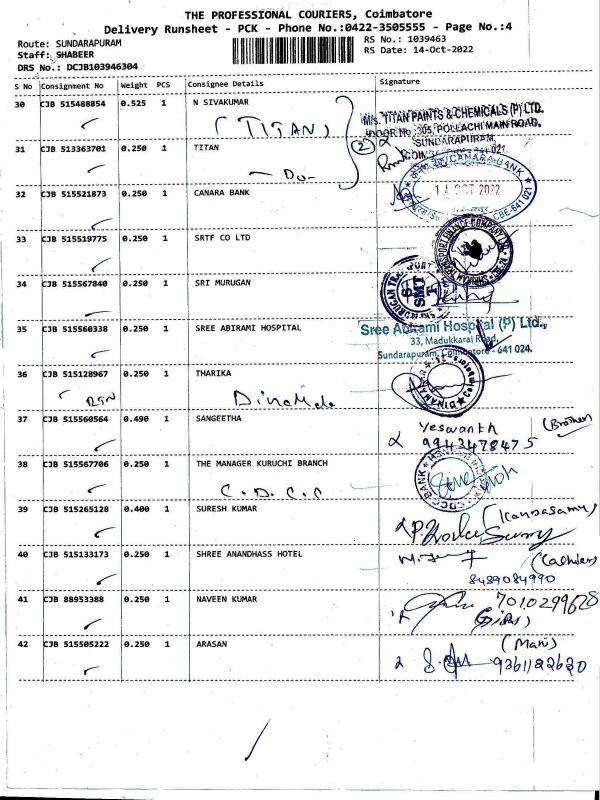 THE PROFESSIONAL COURIERS, Coimbatore
Delivery Runsheet - PCK - Phone No.:0422-3505555 - Page No.:4
Route: SUNDARAPURAM
RS No.: 1039463
Staff: SHABEER
RS Date: 14-Oct-2022
DRS No.: DCJB103946304
S No Consignment No Weight PCS Consignee Details Signature
30 CJB 515488854 0.525 1 N SIVAKUMAR
(TITAN)
M/s. TITAN PAINTS & CHEMICALS (P) LTD.
DOOR No: 305, POLLACHI MAIN ROAD,
SUNDARAPURAM,
31 CJB 513363701 0.250 1 TITAN
- Do - 2
32 CJB 515521873 0.250 1 CANARA BANK
CANARA BANK
14 OCT 2022
CBE-641 021
33 CJB 515519775 0.250 1 SRTF CO LTD
34 CJB 515567840 0.250 1 SRI MURUGAN
SMT
35 CJB 515560338 0.250 1 SREE ABIRAMI HOSPITAL
Sree Abirami Hospital (P) Ltd.,
33, Madukkarai Road,
Sundarapuram, Coimbatore - 641 024.
36 CJB 515128967 0.250 1 THARIKA
DINAMALAR
37 CJB 515560564 0.490 1 SANGEETHA
Yeswanth (Brother)
9943478475
38 CJB 515567706 0.250 1 THE MANAGER KURUCHI BRANCH
C.D.C.C
39 CJB 515265128 0.400 1 SURESH KUMAR
(Kandasamy)
40 CJB 515133173 0.250 1 SHREE ANANDHASS HOTEL
(Cashier)
8489084990
41 CJB 88953388 0.250 1 NAVEEN KUMAR
7010299628
42 CJB 515505222 0.250 1 ARASAN
(Mani)
9361122620